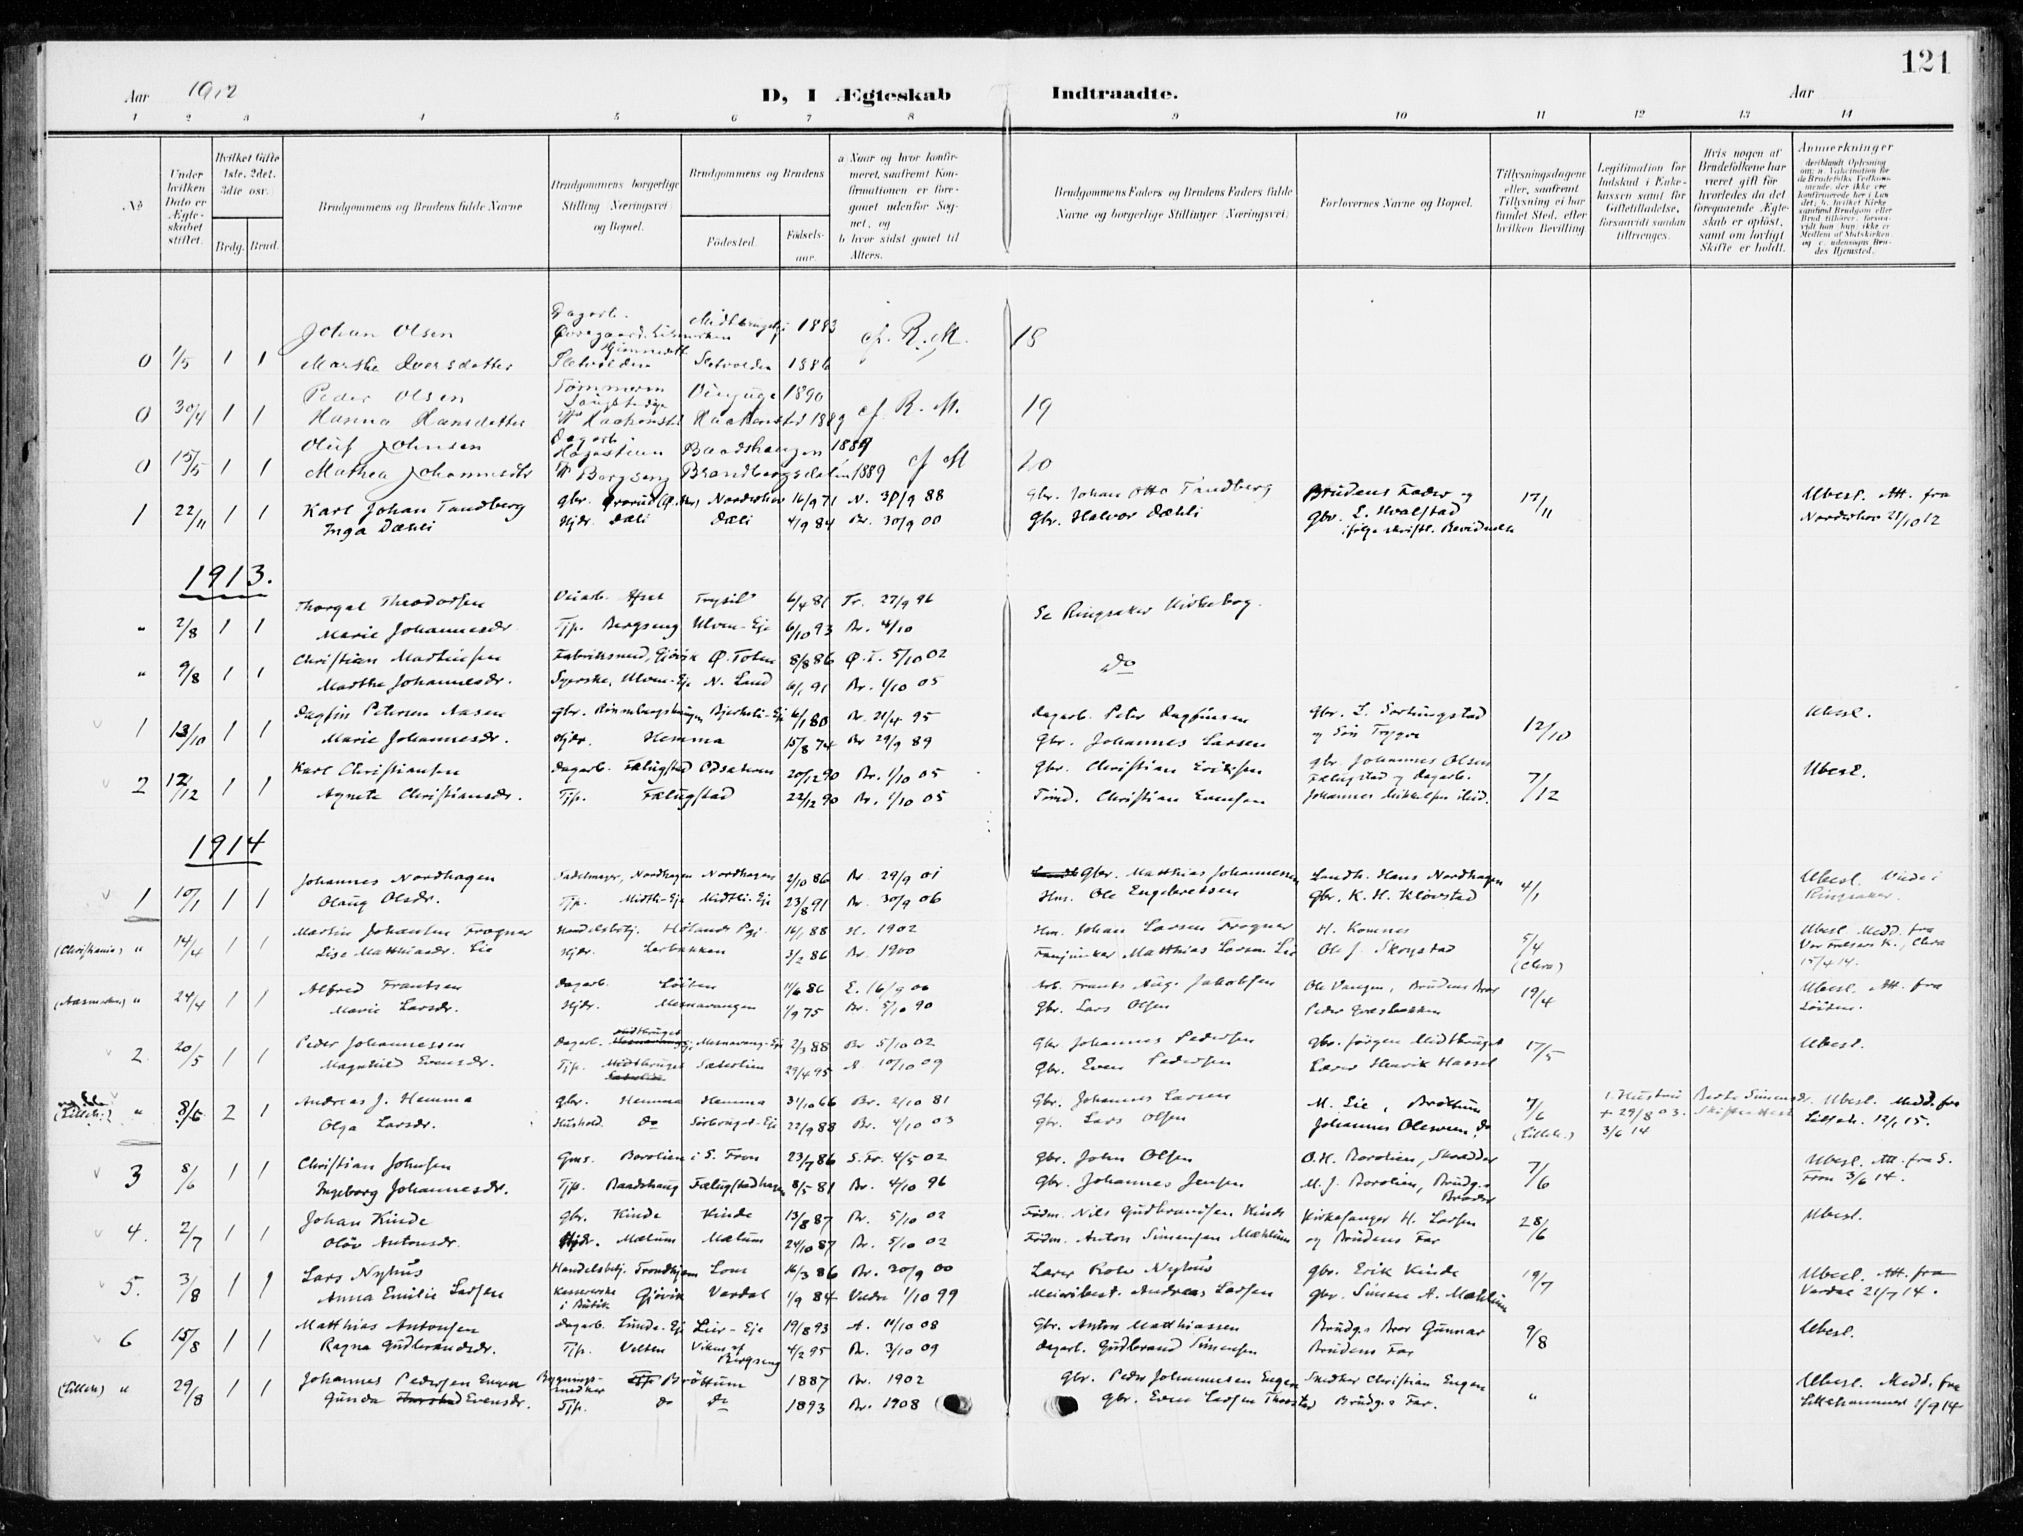 121
Aar 1912 D, I Ægteskab Indtraadte. Aar
1 2 3 4 5 6 7 8 9 10 11 12 13 14
No
Under hvilken Dato er Ægteskabet stiftet.
Hvilket Gifte 1ste, 2det, 3die osv.
Brdg. Brud.
Brudgommens og Brudens fulde Navne
Brudgommens borgerlige Stilling Næringsvei og Bopæl.
Brudgommens og Brudens
Fødested. Fødselsaar.
a Naar og hvor konfirmeret, saafremt Konfirmationen er foregaaet udenfor Sognet, og
b hvor sidst gaaet til Alters.
Brudgommens Faders og Brudens Faders fulde Navne og borgerlige Stillinger (Næringsvei)
Forlovernes Navne og Bopæl.
Tillysningsdagene eller, saafremt Tillysning ei har fundet Sted, efter hvilken Bevilling
Legitimation for Indskud i Enkekassen samt for Giftetilladelse, forsaavidt saadan tiltrænges.
Hvis nogen af Brudefolkene har været gift før hvorledes da det foregaaende Ægteskab er opløst, samt om lovligt Skifte er holdt.
Anmerkninger
Johan Olsen Dagarb. 1883 cf. R. M. 18
0 1/5 1 1 Marthe Iversdatter Sletvolden Sletvolden 1886
Peder Olsen Tømmerm 1890
0 30/4 1 1 Hanna Hansdatter Haakenstad 1889 cf. R. M. 19
Oluf Johnsen Dagarb. Baadshaugen 1889
0 15/5 1 1 Mathea Johannesdtr Bergseng Brandbergsdalen 1889 cf M 20
1 22/11 1 1 Karl Johan Tandberg Gbr. Nordrehov 16/9 71 N. 88 Gbr. Johan Otto Tandberg Brudens Fader og 17/11 Ubesl. Att. fra
Inga Dæhli Hjdr. Dæli Dæli 4/9 84 Br. 30/9 00 Gbr. Halvor Dæhli Gbr. L. Hvalstad Nordrehov 21/10 12
ifølge skriftl. Bevidnelse
1913.
Thorgal Theodorsen Veiarb. Trysil 6/4 81 Tr. 27/9 96 Se Ringsaker Kirkebog.
" 2/8 1 1 Marie Johannesdr. Tjp. Bergseng Ulven-Eje 6/10 93 Br. 4/10
Christian Mathiesen Fabriksmed, Gjøvik Ø. Toten 8/8 86 Ø. T. 5/10 02 Do
" 9/8 1 1 Marthe Johannesdr. Syerske, Ulven-Eje N. Land 6/1 91 Br. 1/10 05
Dagfin Petersen Aasen Gbr. Bjerkeli-Eje 6/1 80 Br. 21/4 95 Dagarb. Peter Dagfinsen Gbr. L. 12/10 Ubesl.
1 13/10 1 1 Marie Johannesdr. Hjdr. Hemma 15/8 74 Br 29/9 89 Gbr. Johannes Larsen og Søn Trygve
Karl Christiansen Dagarb. Fælugstad Odsæteren 20/12 90 Br. 1/10 05 Gbr. Christian Eriksen Gbr. Johannes Olsen 7/12 Ubesl.
2 12/12 1 1 Agnete Christiansdr. Tjp. Fælugstad 22/12 90 Br. 1/10 05 Tømd. Christian Evensen Fælugstad og Dagarb.
Johannes Mikkelsen ibid.
1914
Johannes Nordhagen Sadelmager, Nordhagen Nordhagen 2/10 86 Br. 29/9 01 Gbr. Matthias Johannessen Landh. Hans Nordhagen 4/1 Ubesl. Viede i
1 10/1 1 1 Olaug Olsdr. Tjp. Midtli-Eje Midtli-Eje 23/8 91 Br. 30/9 06 Hm. Ole Engebretsen Gbr. K. H. Kløvstad Ringsaker.
Martin Johansen Frogner Handelsbetj. Hølands Pgj. 16/1 88 H. 1902 Hm. Johan Larsen Frogner H. Komnes 5/4 Ubesl. Medd. fra
(Christiania) " 14/4 1 1 Lise Matthiasdr. Lie Hjdr. Lerbakken 3/2 86 Br. 1900 Fanejunker Matthias Larsen Lie Ole J. Skogstad (Chra) Vor Frelsers K., Chra
15/4 14.
Alfred Frantsen Dagarb. Løiten 11/6 86 L. 16/9 00 Arb. Frants Aug. Jakobsen Ole Vangen, Brudens Bror 19/4 Ubesl. Att. fra
(Aasmarken) " 24/4 1 1 Marie Larsdr. Hjdr. Mesnavangen 1/9 75 Br. 5/10 90 Gbr. Lars Olsen Peder Løiten.
Peder Johannessen Dagarb. Midtbruget Mesnavang-Eje 2/3 88 Br 5/10 02 Gbr Johannes Pedersen Gbr. Jørgen Midtbruget 17/5 Ubesl.
2 20/5 1 1 Magnhild Evensdr. Tjp. Midtbruget Sæterlien 29/4 95 10/10 09 Gbr. Even Pedersen Lærer Henrik Hassel
Andreas J. Hemma Gbr. Hemma Hemma 31/10 66 Br. 2/10 81 Gbr. Johannes Larsen M. Lie, Brøttum 7/6 1. Hustru Berte Simensdr. Ubesl. Medd. fra
(Lilleh.) " 8/6 2 1 Olga Larsdr. Hushold. Do 22/9 88 Br. 4/10 03 Gbr. Lars Olsen Johannes Do (Lilleh.) + 29/8 03. Lilleh. 12/1 15.
3/6 14
3 8/6 1 1 Christian Johnsen Gms. Borolien i S. Fron 23/7 86 S. Fr. 4/5 02 Gbr. John Olsen O. H. Borolien, Skrædder 7/6 Ubesl. Att. fra S.
Ingeborg Johannesdr. Tjp. Baadshaug Fælugstadhagen 8/5 81 Br. 4/10 96 Gbr. Johannes Jensen M. J. Borolien, Brudg.s Broder Fron 3/6 14.
4. 2/7 1 1 Johan Kinde Gbr. Kinde Kinde 13/8 87 Br. 5/10 02 Fødm. Nils Gudbrandsen Kinde Kirkesanger H. Larsen 28/6 Ubesl.
Oløv Antonsdr. Hjdr. Mælum Mælum 24/10 87 Br. 5/10 02 Fødm. Anton Simensen Mæhlum og Brudens Far
5. 3/8 1 1 Lars Nyhus Handelsbetj. Trondhjem Lom 16/3 86 Br. 30/9 00 Lærer Rolv Nyhus Gbr. Erik Kinde 19/7 Ubesl. Att. fra
Anna Emilie Larsen Kasserske i Butik Gjøvik Vardal 1/9 84 Vardal 1/10 99 Meieribest. Andreas Larsen Gbr. Simen A. Mæhlum Vardal 21/7 14.
6 15/8 1 1 Matthias Antonsen Dagarb. Lunde-Eje Lier-Eje 19/8 93 A. 11/10 08 Gbr. Anton Matthiassen Brudg.s Bror Gunnar 9/8 Ubesl.
Ragna Gudbrandsdr. Tjp. Velten Viken af Bergseng 4/2 95 Br. 3/10 09 Dagarb. Gudbrand Simensen Brudens Far
(Lilleh) " 29/8 1 1 Johannes Pedersen Engen Bygningssnedker Brøttum 1887 Br. 1902 Gbr. Peder Johannessen Engen Snedker Christian Engen " Ubesl. Medd. fra
Gunda Thorstad Evensdr. Tjp. Do Do 1893 Br. 1908 Gbr. Even Larsen Thorstad Brudg.s Far. Lillehammer 1/9 14